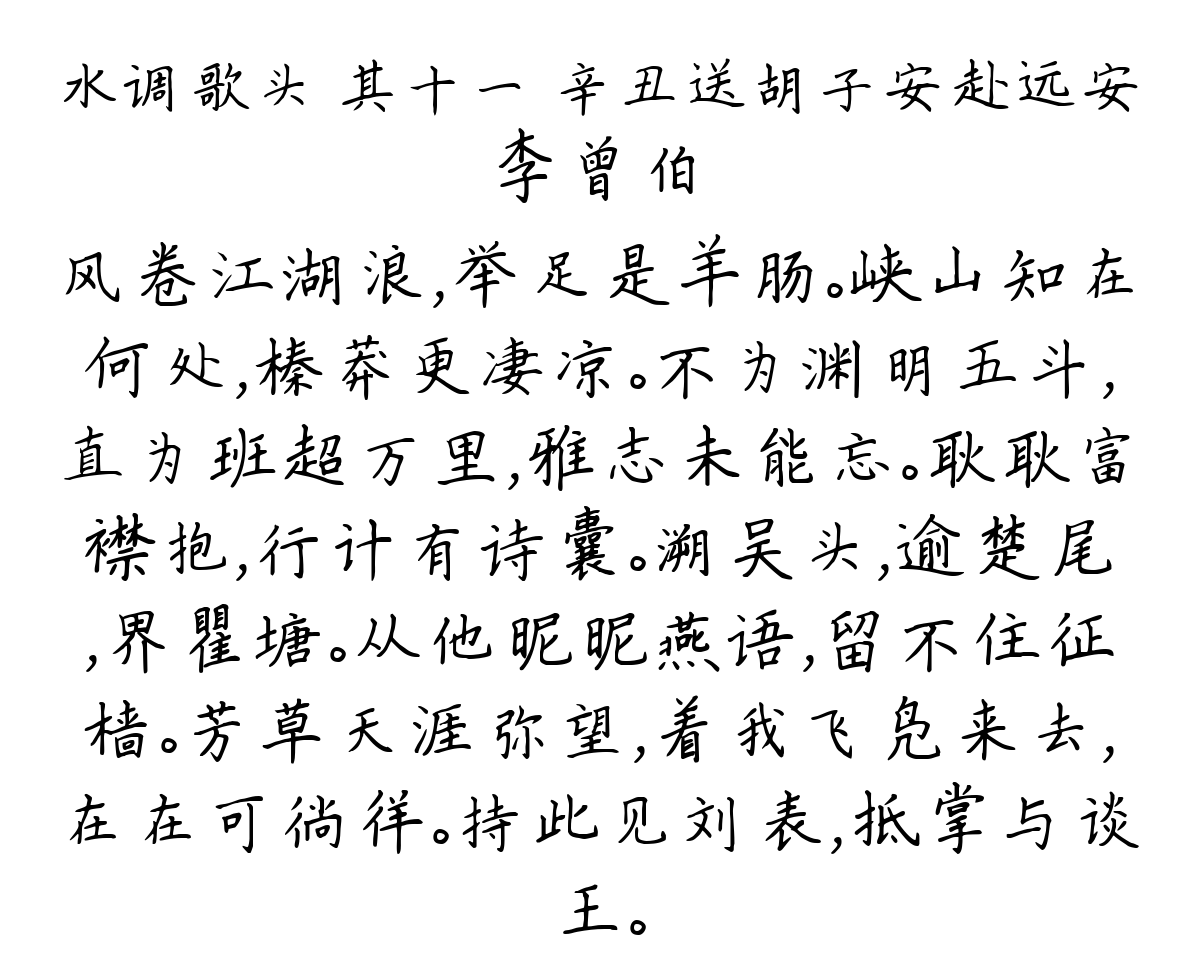 水调歌头 其十一 辛丑送胡子安赴远安
李曾伯
风卷江湖浪,举足是羊肠。峡山知在
何处,榛莽更凄凉。不为渊明五斗,
直为班超万里,雅志未能忘。耿耿富
襟抱,行计有诗囊。溯吴头,逾楚尾
,界瞿塘。从他昵昵燕语,留不住征
樯。芳草天涯弥望,着我飞凫来去,
在在可徜徉。持此见刘表,抵掌与谈
王。